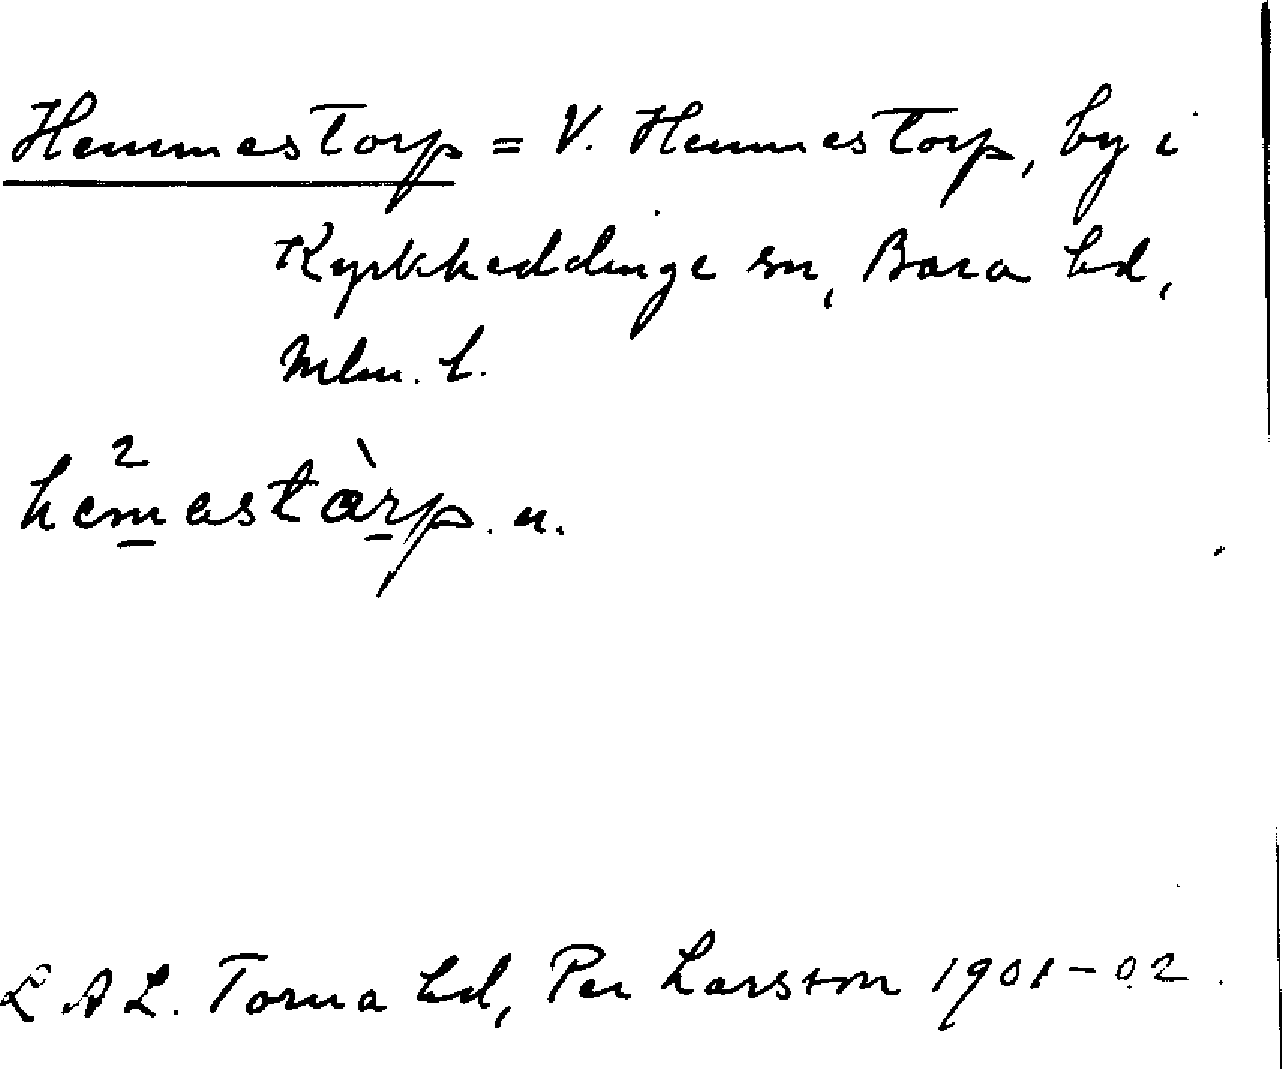 Hemmestorp = V. Hemmestorp, by i
Kyrkheddinge sn, Bara hd,
Mlm. l.
hem̲²astàr̲p. n.
LAL. Torna hd, Per Larsson 1901-02.